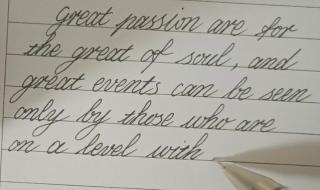 great passion are for
the great of soul, and
great events can be seen
only by those who are
on a level with